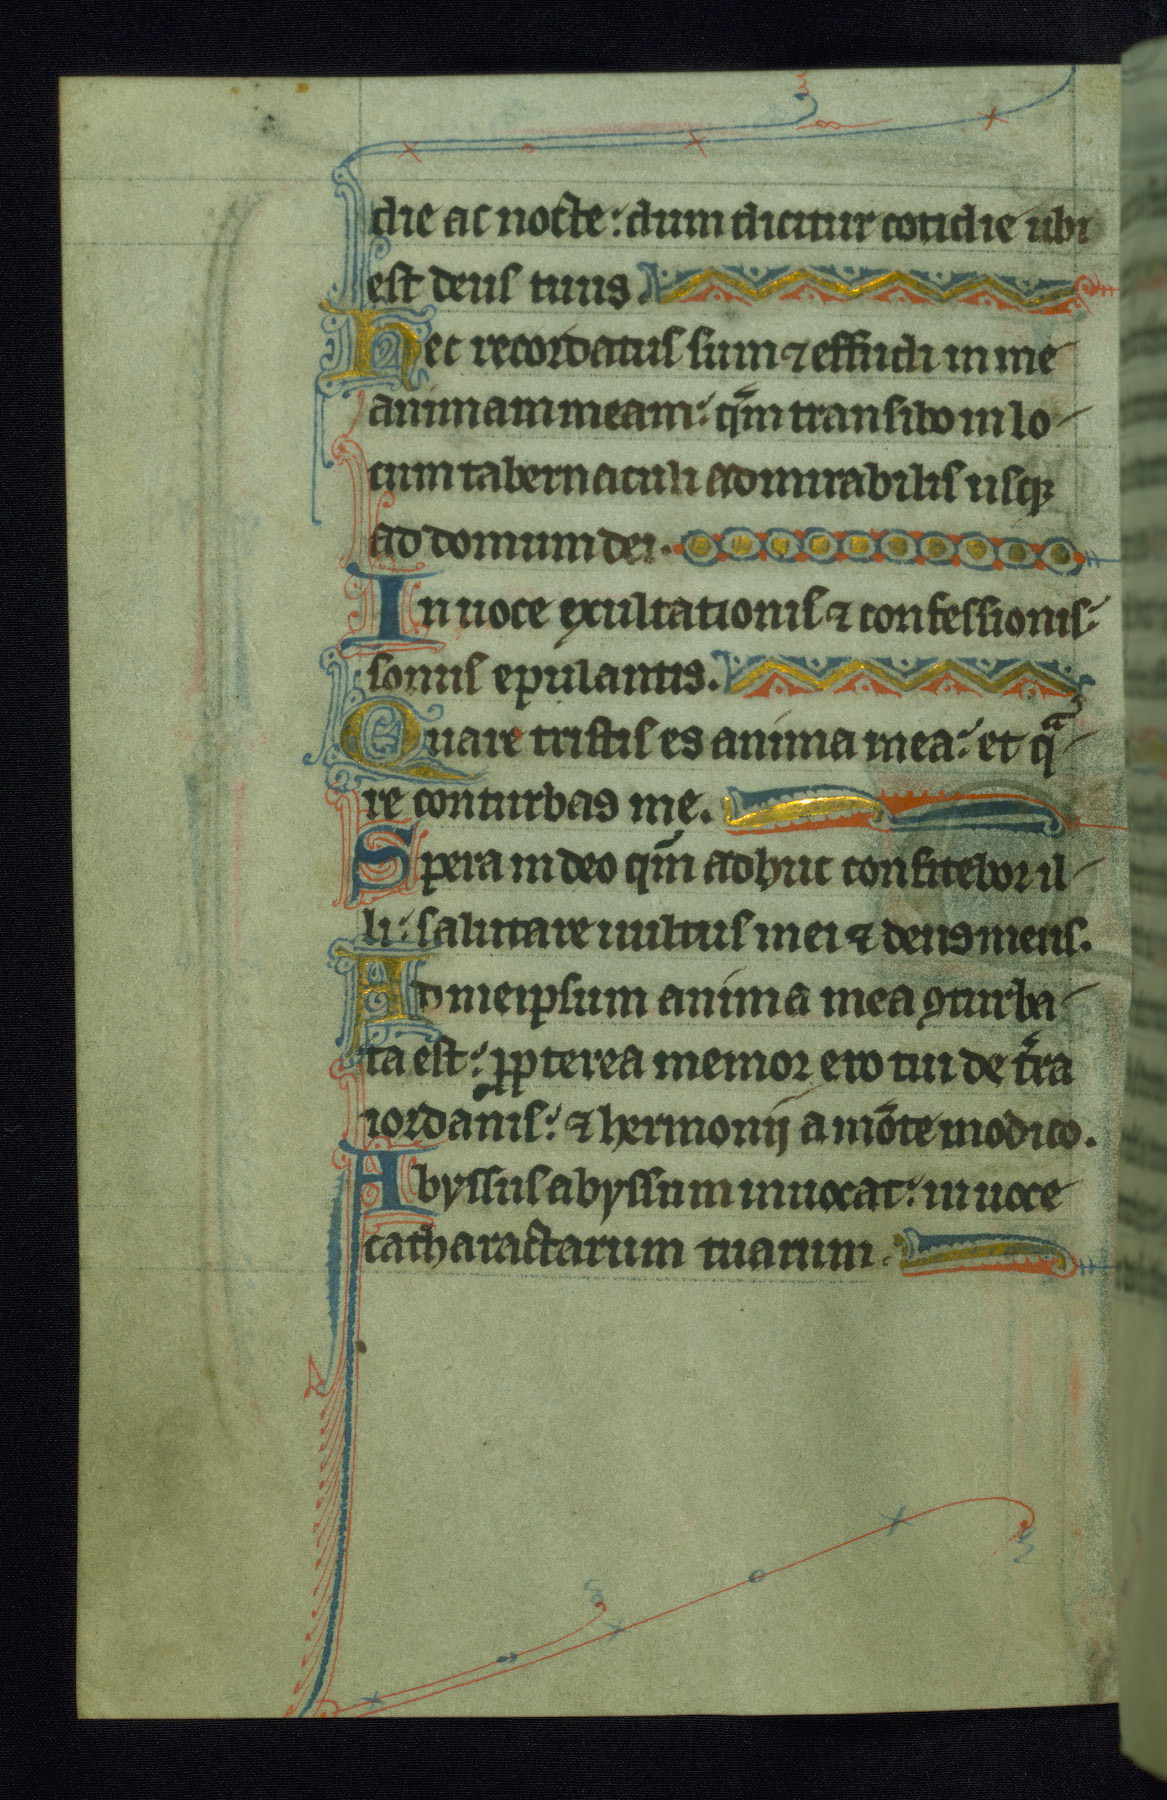 die ac nocte: dum dicitur cotidie ubi
est deus tuus.
Hec recordatus sum ⁊ effudi in me
animam meam: qm̄ transibo in lo-
cum tabernaculi admirabilis usqꝫ
ad domum dei.
In uoce exultationis ⁊ confessionis:
sonus epulantis.
Quare tristis es anima mea: et qᵃ-
re conturbas me.
Spera in deo qm̄ adhuc confitebor il-
li: salutare uultus mei ⁊ deus meus.
Ad meipsum anima mea ꝯturba-
ta est: ꝓpterea memor ero tui de t̄ra
iordanis: ⁊ hermonij a mōte modico.
Abyssus abyssum inuocat: in uoce
catharactarum tuarum.